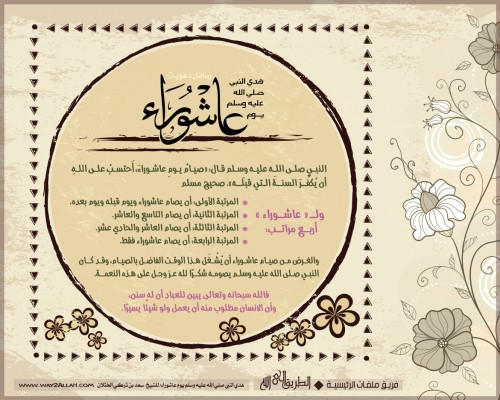 رسائل دعوية
هدي النبي
صلى الله
عليه وسلم
يوم
عاشوراء
النبي صلى الله عليه وسلم قال: «صيامُ يومِ عاشوراءَ، أَحتسبُ على اللهِ
أن يُكفِّرَ السنةَ التي قبلَه». صحيح مسلم
ولـ « عاشـوراء »
أربع مراتب:
المرتبة الأولى: أن يصام عاشوراء ويوم قبله ويوم بعده.
المرتبة الثانية: أن يصام التاسع والعاشر.
المرتبة الثالثة: أن يصام العاشر والحادي عشر.
المرتبة الرابعة: أن يصام عاشوراء فقط.
والغرض من صيام عاشوراء أن يُشغَل هذا الوقت الفاضل بالصيام، وقد كان
النبي صلى الله عليه وسلم يصومه شكرًا لله عز وجل على هذه النعمة.
فالله سبحانه وتعالى يبين للعباد أن له سنن،
وأن الإنسان مطلوب منه أن يعمل ولو شيئًا يسيرًا.
فريق ملفات الرئيسية ◆ الطريق إلى الله
هدي النبي صلى الله عليه وسلم يوم عاشوراء للشيخ سعد بن تركي الخثلان
WWW.WAY2ALLAH.COM